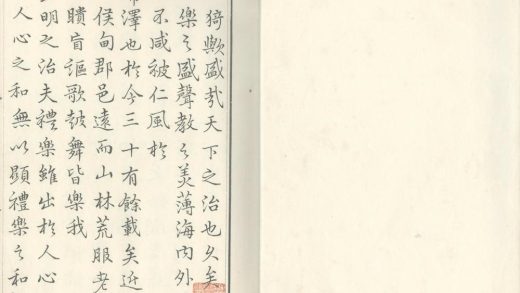 猗歟盛哉天下之治也久矣
樂之盛聲教之美薄海內外
不咸被仁風於
澤也於今三十有餘載矣近
侯甸郡邑遠而山林荒服老
聵盲謳歌鼓舞皆樂我
明之治夫禮樂雖出於人心
人心之和無以顯禮樂之和